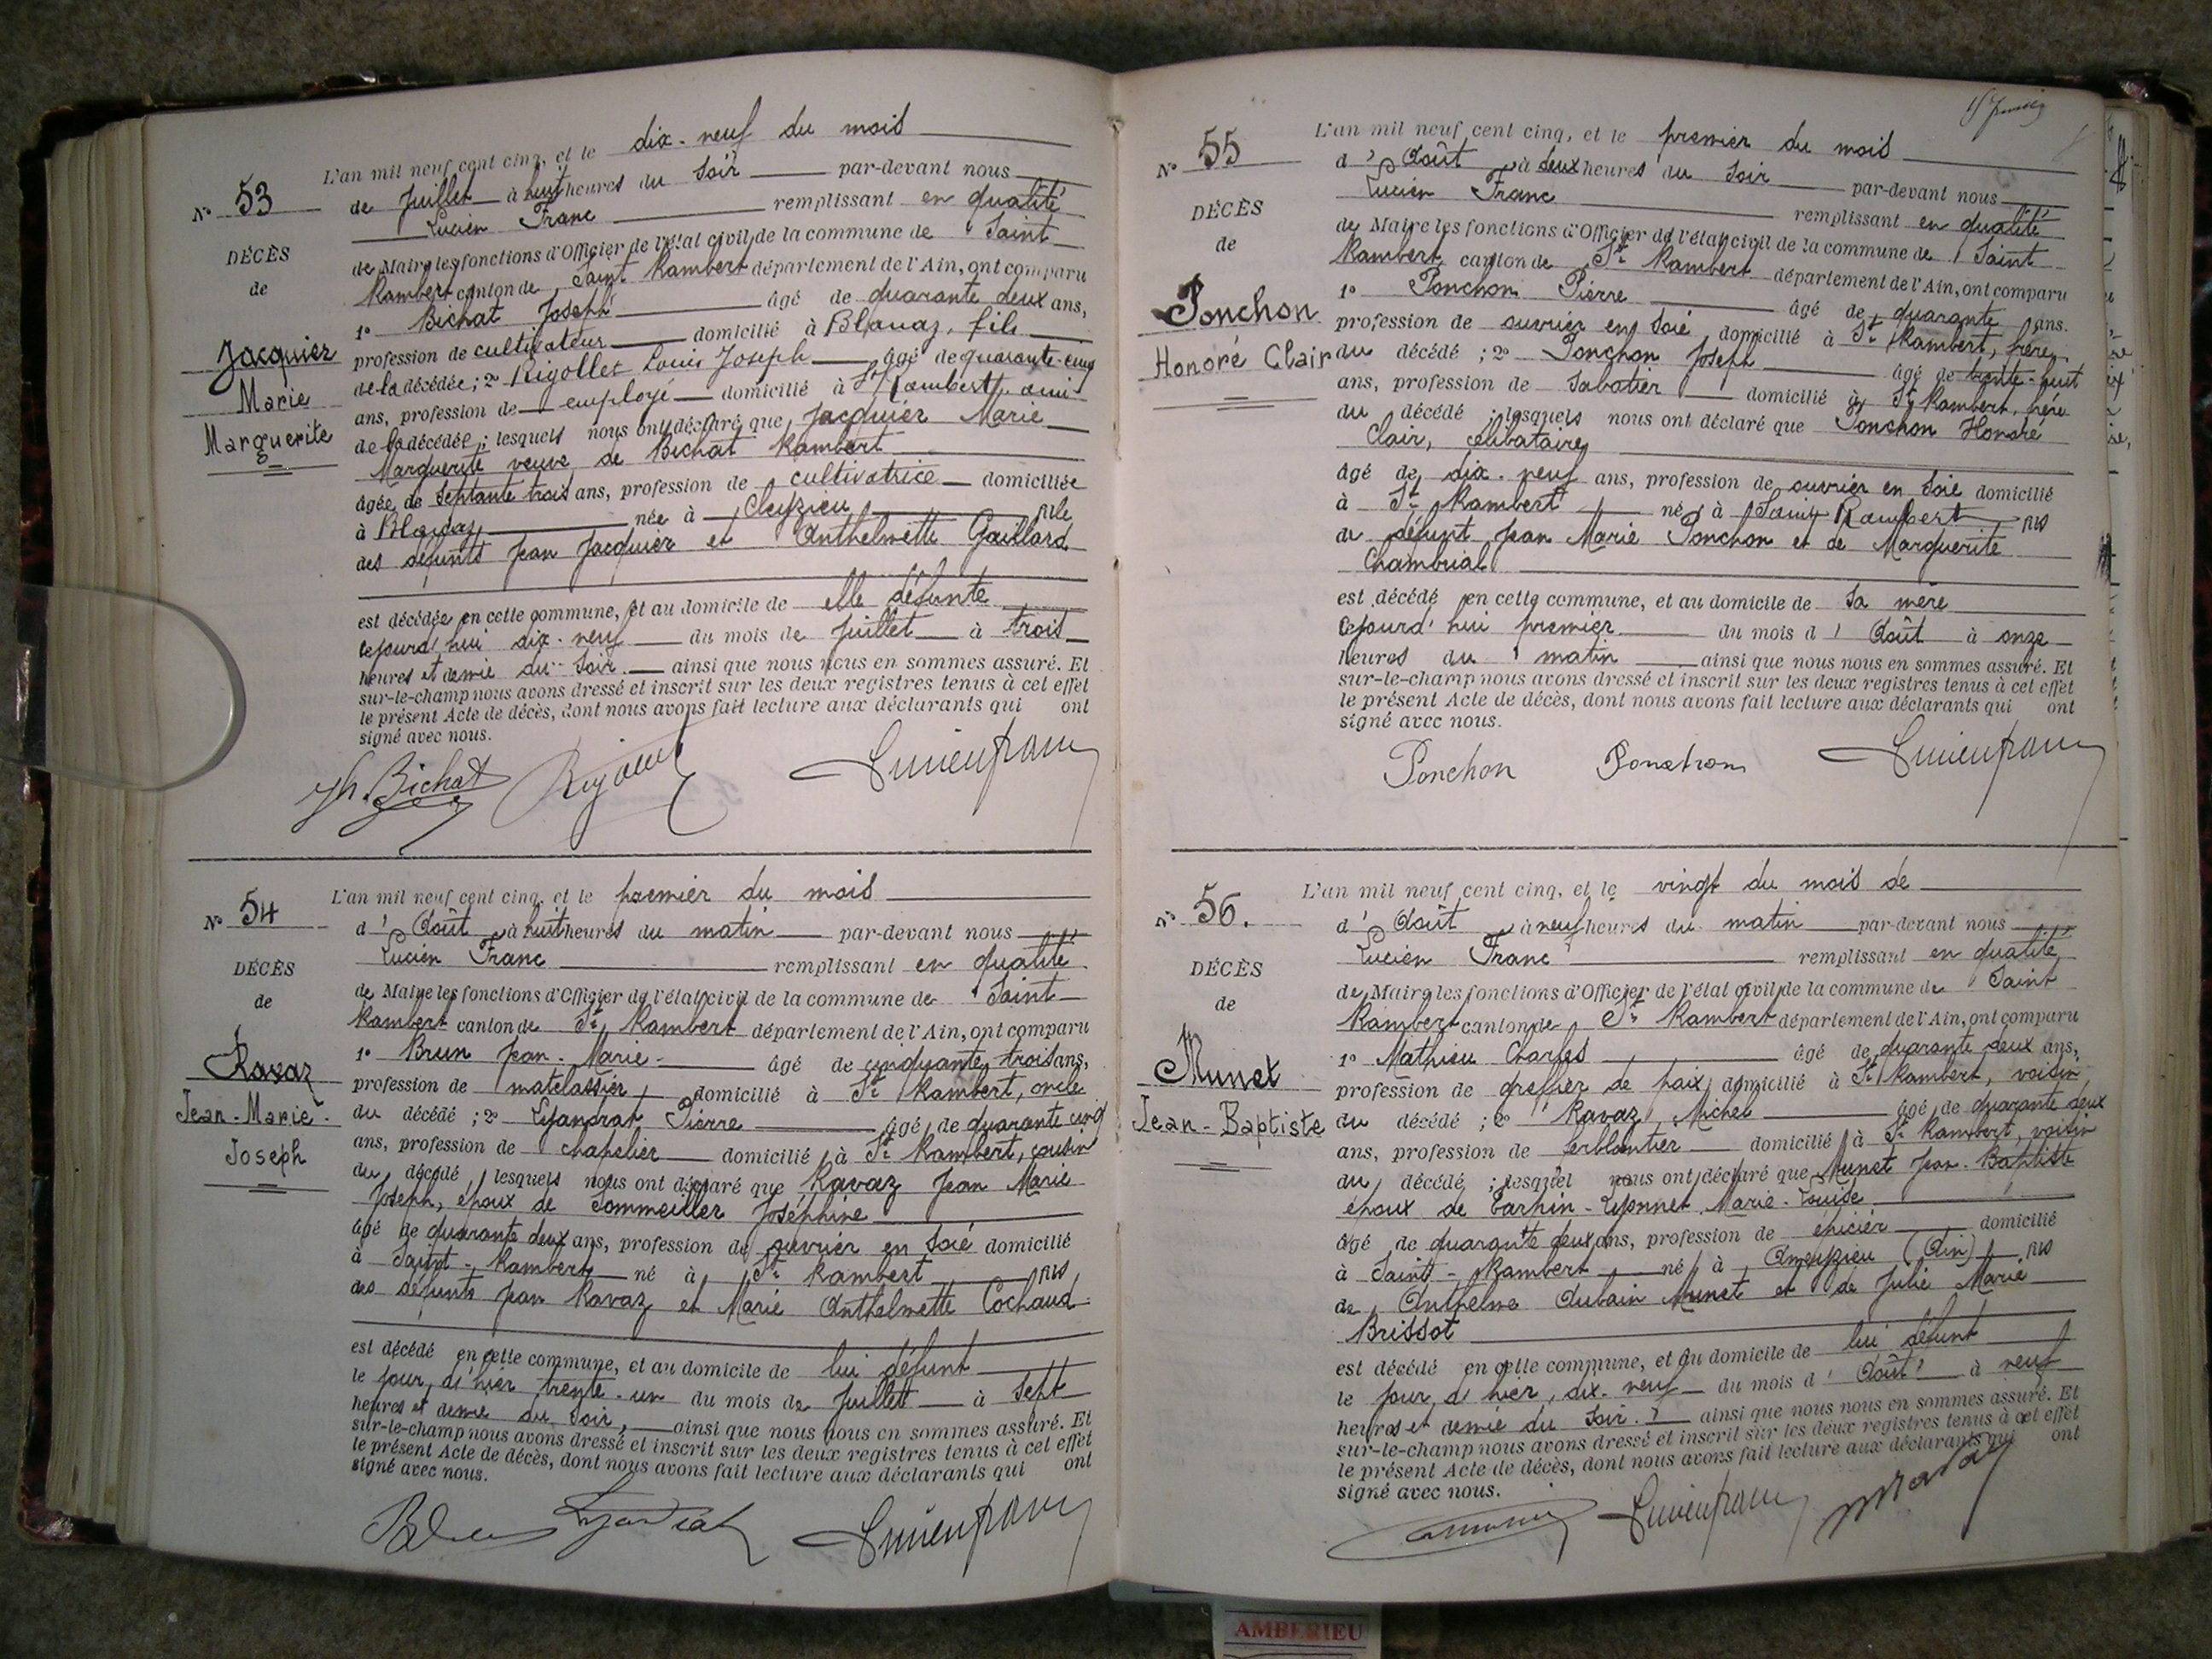 N° 53
DÉCÈS
de
Jacquier
Marie
Marguerite
L'an mil neuf cent cinq, et le dix-neuf du mois
de Juillet à huit heures du Soir par-devant nous
Lucien Franc remplissant en qualité
de Maire les fonctions d'Officier de l'état civil de la commune de Saint
Rambert canton de Saint Rambert département de l'Ain, ont comparu
1° Bichat Joseph âgé de quarante deux ans,
profession de cultivateur domicilié à Blanaz, fils
de la décédée; 2° Rigollet Louis Joseph âgé de quarante-cinq
ans, profession de employé domicilié à St Rambert, ami
de la décédée; lesquels nous ont déclaré que Jacquier Marie
Marguerite veuve de Bichat Rambert
âgée de Septante trois ans, profession de cultivatrice domiciliée
à Blanaz née à Cleyzieu fille
des défunts Jean Jacquier et Anthelmette Gaillard
est décédée en cette commune, et au domicile de elle défunte
cejourd'hui dix-neuf du mois de Juillet à trois
heures et demie du Soir. ainsi que nous nous en sommes assuré. Et
sur-le-champ nous avons dressé et inscrit sur les deux registres tenus à cet effet
le présent Acte de décès, dont nous avons fait lecture aux déclarants qui ont
signé avec nous.
Jh. Bichat Rigollet Lucien franc
N° 54
DÉCÈS
de
Ravaz
Jean-Marie-
Joseph
L'an mil neuf cent cinq, et le premier du mois
d'Août à huit heures du matin par-devant nous
Lucien Franc remplissant en qualité
de Maire les fonctions d'Officier de l'état civil de la commune de Saint
Rambert canton de St Rambert département de l'Ain, ont comparu
1° Brun Jean-Marie- âgé de cinquante trois ans,
profession de matelassier domicilié à St Rambert, oncle
du décédé; 2° Lyandrat Pierre âgé de quarante cinq
ans, profession de chapelier domicilié à St Rambert, cousin
du décédé, lesquels nous ont déclaré que Ravaz Jean Marie
Joseph, époux de Sommeiller Joséphine
âgé de quarante deux ans, profession de ouvrier en Soie domicilié
à Saint-Rambert né à St Rambert fils
des défunts Jean Ravaz et Marie Anthelmette Cochaud
est décédé en cette commune, et au domicile de lui défunt
le jour d'hier trente-un du mois de Juillet à Sept
heures et demie du Soir, ainsi que nous nous en sommes assuré. Et
sur-le-champ nous avons dressé et inscrit sur les deux registres tenus à cet effet
le présent Acte de décès, dont nous avons fait lecture aux déclarants qui ont
signé avec nous.
Lyandrat Lucien franc
N° 55
DÉCÈS
de
Ponchon
Honoré Clair
L'an mil neuf cent cinq, et le premier du mois
d'Août à deux heures du Soir par-devant nous
Lucien Franc remplissant en qualité
de Maire les fonctions d'Officier de l'état civil de la commune de Saint
Rambert canton de St Rambert département de l'Ain, ont comparu
1° Ponchon Pierre âgé de quarante ans.
profession de ouvrier en Soie domicilié à St Rambert, frère
du décédé; 2° Ponchon Joseph âgé de trente-huit
ans, profession de Sabotier domicilié à St Rambert, frère
du décédé; lesquels nous ont déclaré que Ponchon Honoré
Clair, célibataire
âgé de dix-neuf ans, profession de ouvrier en Soie domicilié
à St Rambert né à Saint Rambert fils
de défunt Jean Marie Ponchon et de Marguerite
Chambrial
est décédé en cette commune, et au domicile de Sa mère
cejourd'hui premier du mois d'Août à onze
heures du matin ainsi que nous nous en sommes assuré. Et
sur-le-champ nous avons dressé et inscrit sur les deux registres tenus à cet effet
le présent Acte de décès, dont nous avons fait lecture aux déclarants qui ont
signé avec nous.
Ponchon Ponchon Lucien franc
N° 56.
DÉCÈS
de
Munet
Jean-Baptiste
L'an mil neuf cent cinq, et le vingt du mois de
d'Août à neuf heures du matin par-devant nous
Lucien Franc remplissant en qualité
de Maire les fonctions d'Officier de l'état civil de la commune de Saint
Rambert canton de St Rambert département de l'Ain, ont comparu
1° Mathieu Charles âgé de quarante deux ans,
profession de greffier de paix domicilié à St Rambert, voisin
du décédé; 2° Ravaz Michel âgé de quarante deux
ans, profession de ferblantier domicilié à St Rambert, voisin
du décédé; lesquel nous ont déclaré que Munet Jean-Baptiste
époux de Tarpin-Lyonnet Marie-Louise
âgé de quarante deux ans, profession de épicier domicilié
à Saint-Rambert né à Ameyzieu (Ain) fils
de Anthelme Aubain Munet et de Julie Marie
Brissot
est décédé en cette commune, et au domicile de lui défunt
le jour d'hier, dix-neuf du mois d'Août à neuf
heures et demie du Soir. ainsi que nous nous en sommes assuré. Et
sur-le-champ nous avons dressé et inscrit sur les deux registres tenus à cet effet
le présent Acte de décès, dont nous avons fait lecture aux déclarants qui ont
signé avec nous.
Lucien franc Ravaz
AMBERIEU